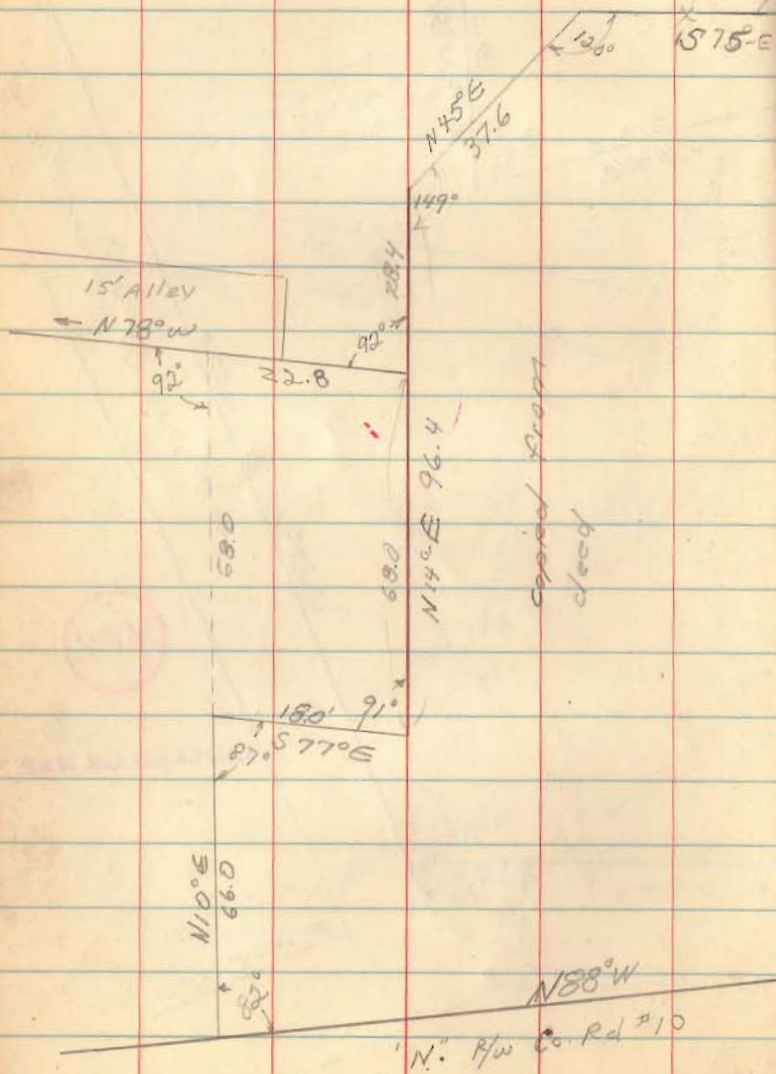 120°
S 75°E
N 45°E
37.6
149°
28.4
15' Alley
← N 78° W
92°
22.8
92°
68.0
68.0
N 14° E 96.4
copied from
deed
18.0'
91°
87°
S 77° E
N 10° E
66.0
82°
N 88° W
"N." R/W Co. Rd #10